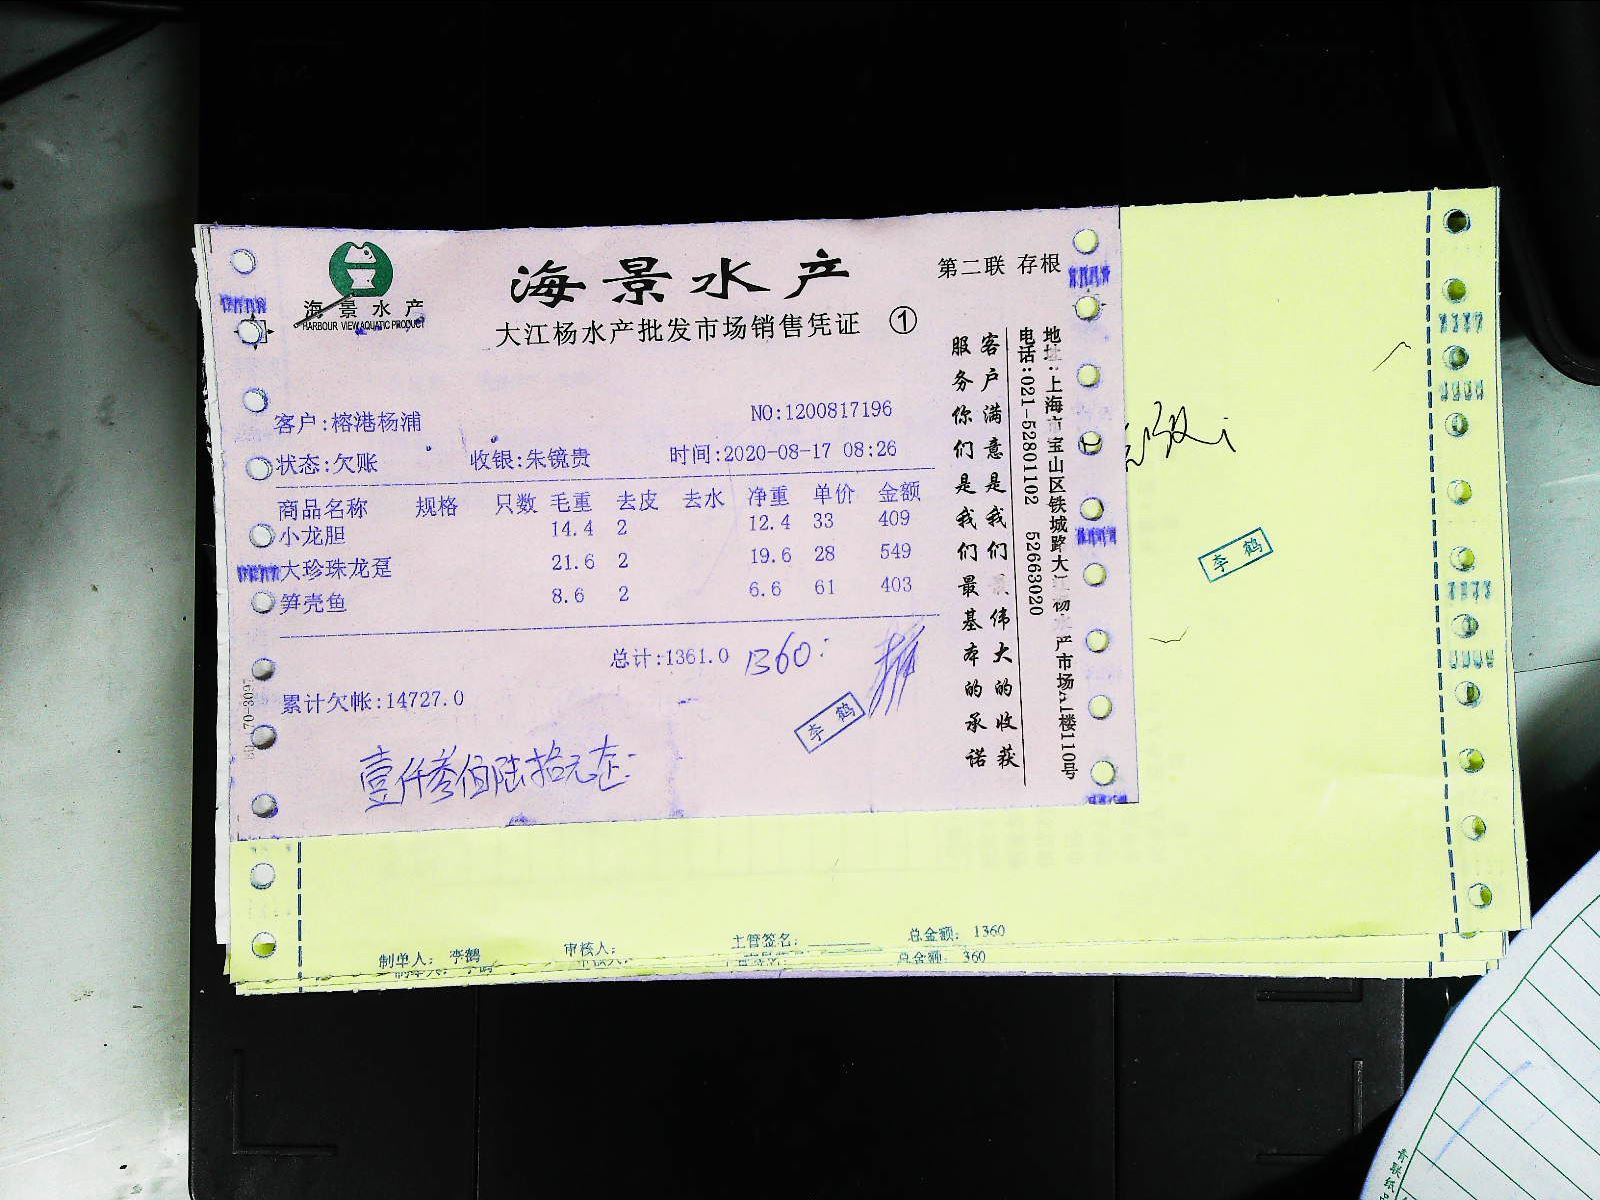 海景水产
HARBOUR VIEW AQUATIC PRODUCT
海景水产
第二联 存根
大江杨水产批发市场销售凭证 ①
客户:榕港杨浦 NO:1200817196
状态:欠账 收银:朱镜贵 时间:2020-08-17 08:26
商品名称 规格 只数 毛重 去皮 去水 净重 单价 金额
小龙胆 14.4 2 12.4 33 409
大珍珠龙趸 21.6 2 19.6 28 549
笋壳鱼 8.6 2 6.6 61 403
总计:1361.0 1360
累计欠帐:14727.0
李鹤
壹仟叁佰陆拾元正
客户满意是我们 伟大的收获
服务你们是我们最基本的承诺
地址:上海市宝山区铁城路大江杨水产市场A1楼110号
电话:021-52801102 52663020
李鹤
制单人: 李鹤 审核人: 主管签名: 总金额: 1360
制单人: 李鹤 总金额: 360